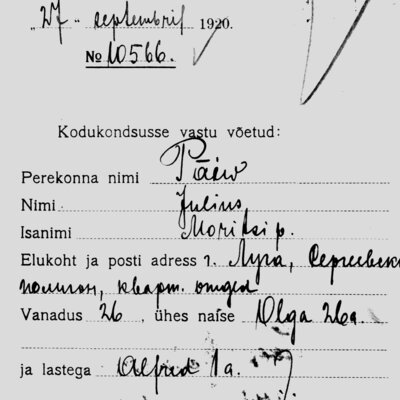 "27" septembril 1920.
№ 10566.
Kodukondsusse vastu võetud:
Perekonna nimi Pääw
Nimi Julius
Isanimi Moritsi p.
Elukoht ja posti adress г. Луга, Сергиевск
полигон, кварт.
Vanadus 26, ühes naise Olga 26 a.
ja lastega Alfred 1 a.